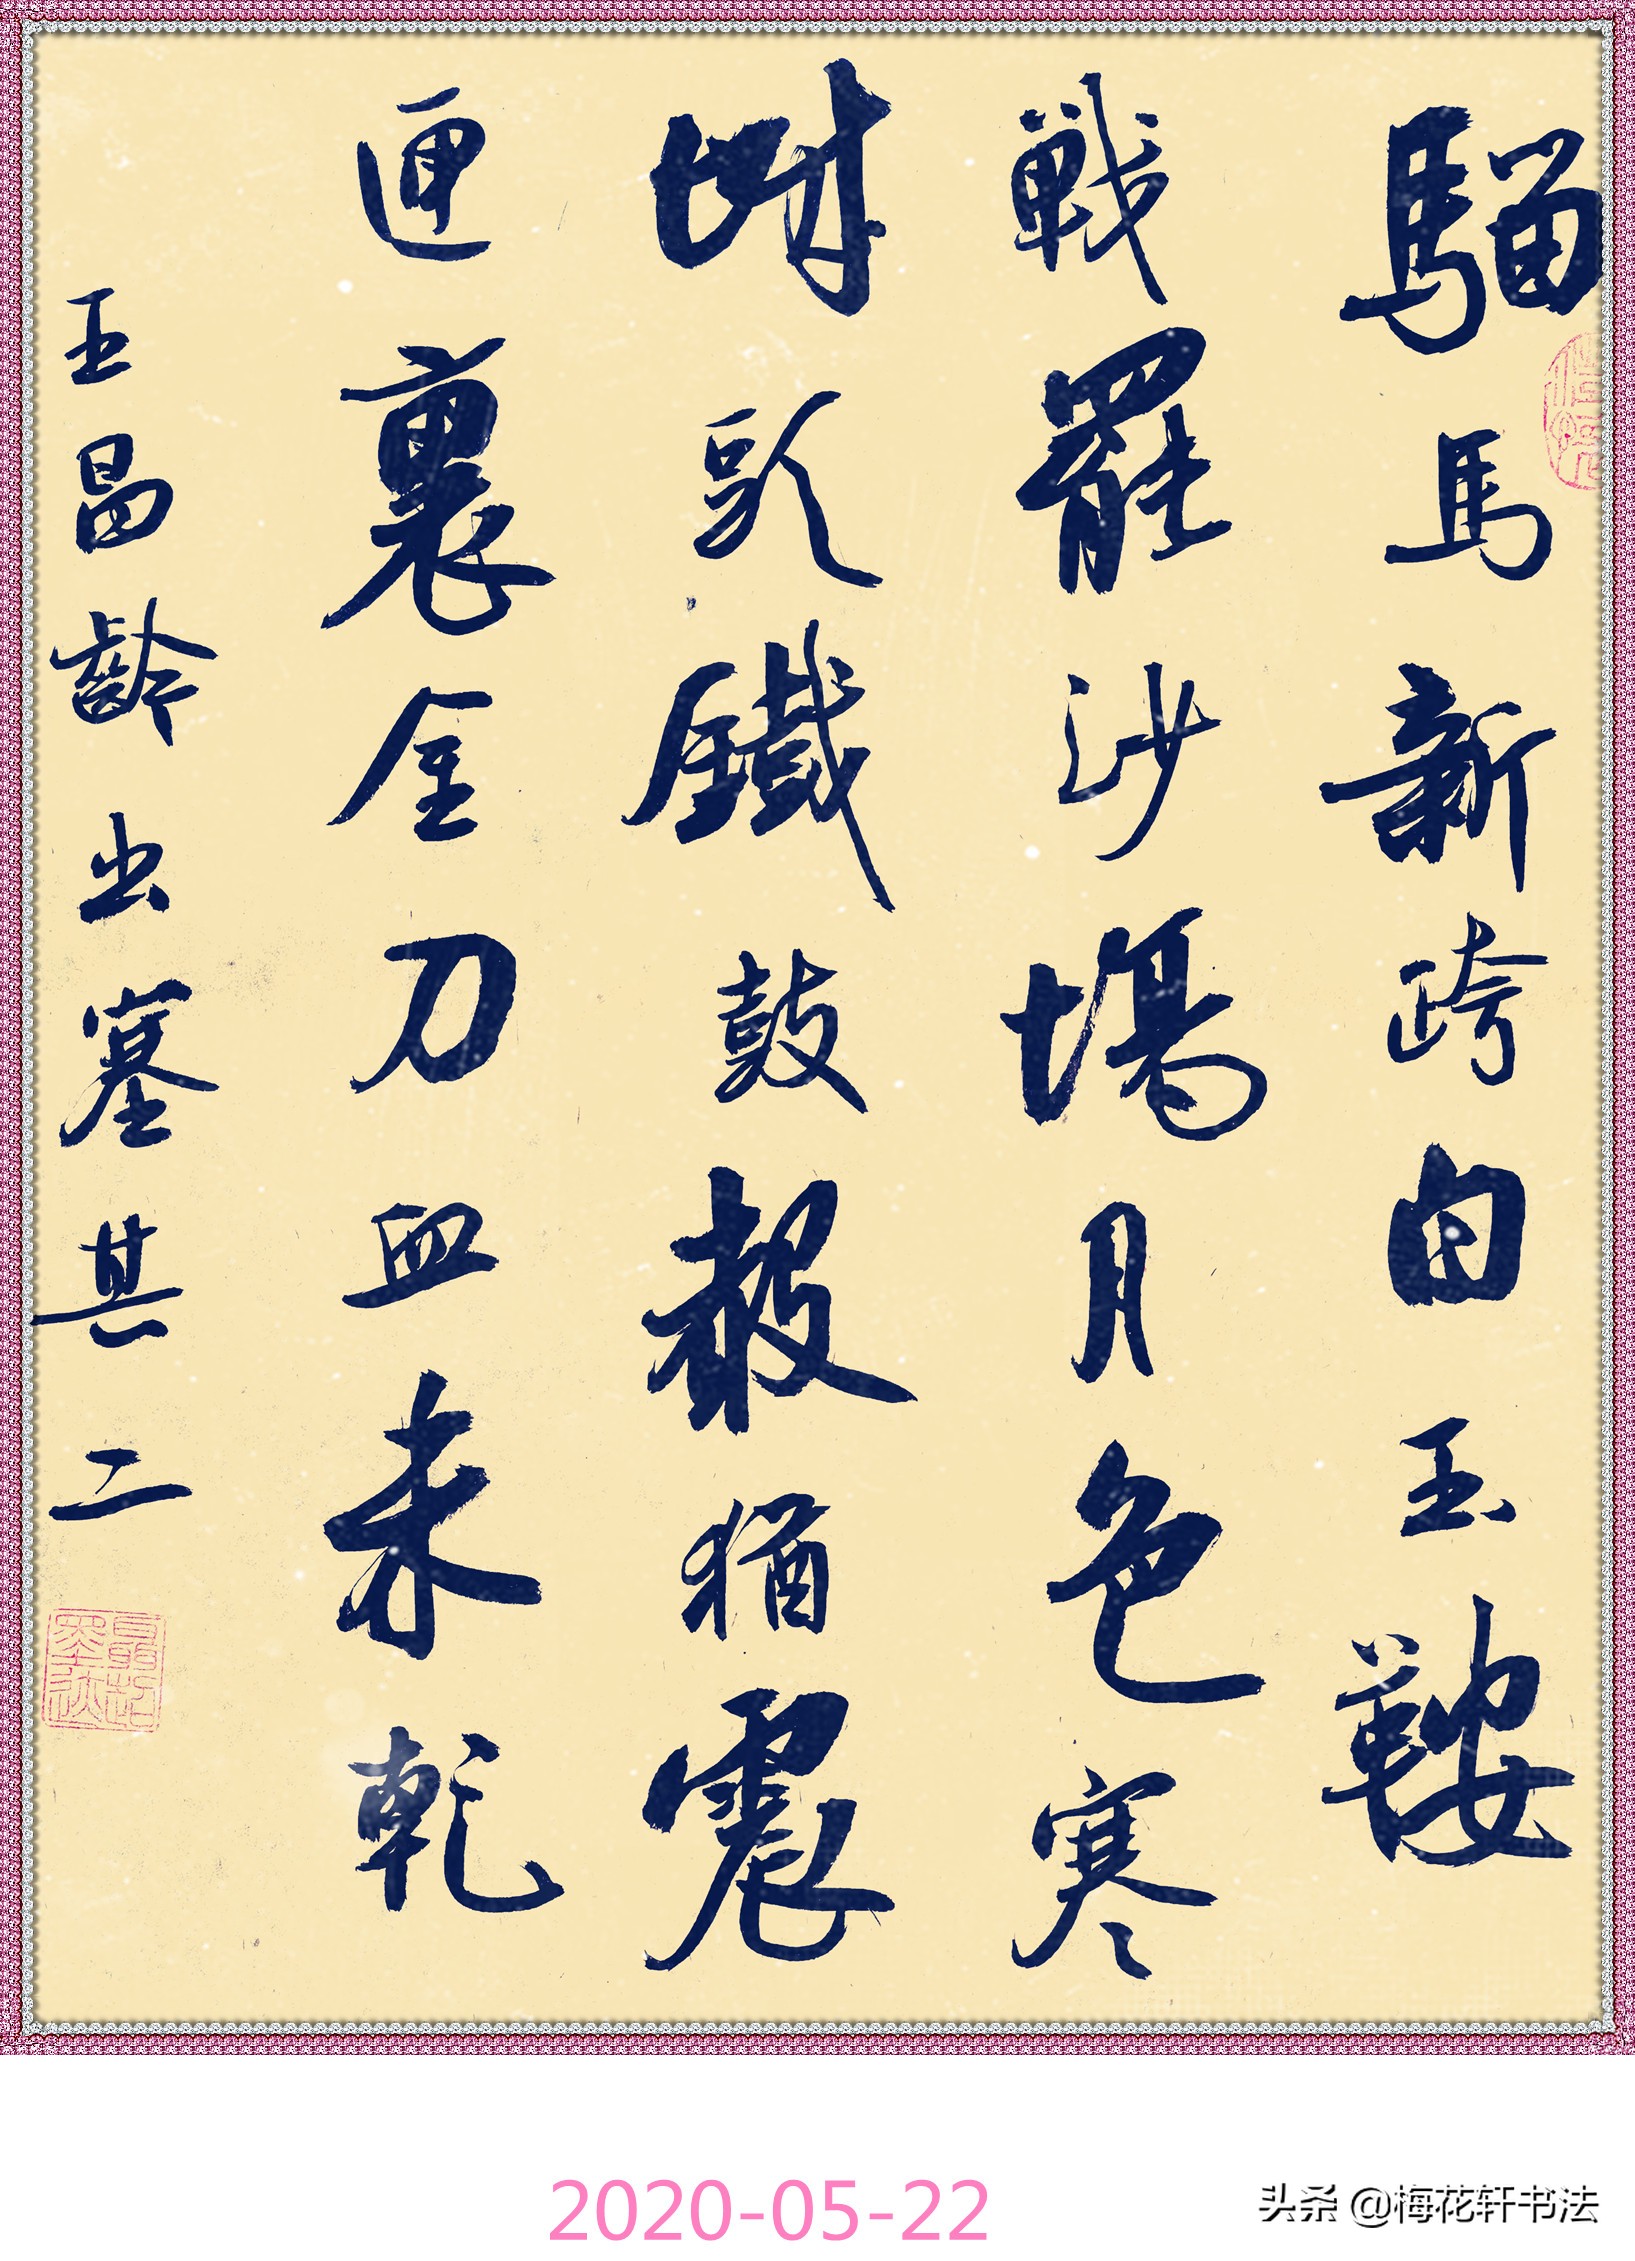 騮馬新跨白玉鞍
戰罷沙場月色寒
城頭鐵鼓聲猶震
匣裏金刀血未乾
王昌齡出塞其二
2020-05-22
头条 @梅花轩书法